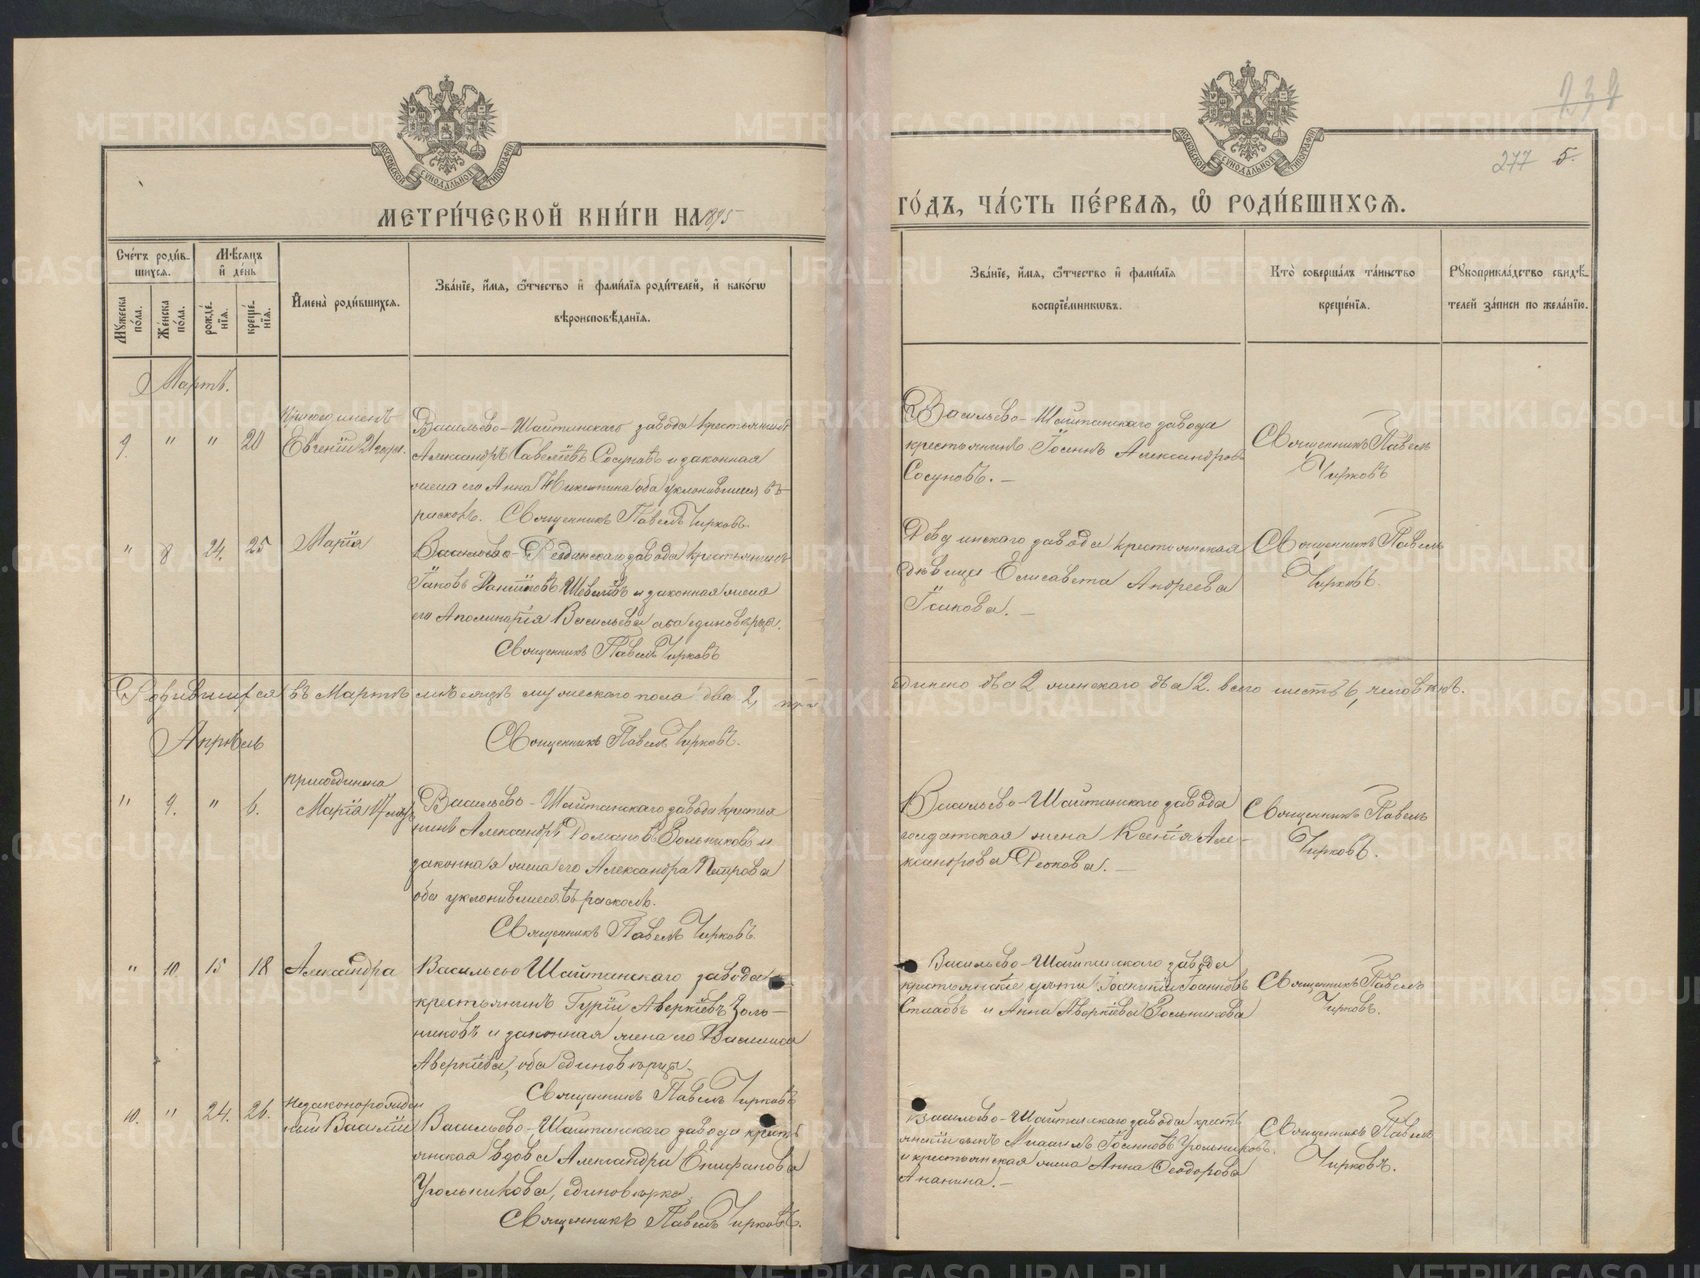 238
277 5.
МОСКОВСКОЙ СѴНОДАЛЬНОЙ ТИПОГРАФІИ
МОСКОВСКОЙ СѴНОДАЛЬНОЙ ТИПОГРАФІИ
МЕТРИ́ЧЕСКОЙ КНИ́ГИ НА 1895
ГО́ДЪ, ЧА́СТЬ ПЕ́РВАѦ, Ѡ҆ РОДИ́ВШИХСѦ.
Сче́тъ роди́в-
шихсѧ.
Мꙋжеска по́ла.
Же́нска по́ла.
Мѣ́сѧцъ
и҆ де́нь
рожде́-
нїѧ.
креще́-
нїѧ.
И҆мена̀ роди́вшихсѧ.
Зва́нїе, и҆́мѧ, ѻ҆́тчество и҆ фами́лїѧ роди́телей, и҆ како́гѡ
вѣроисповѣ́данїѧ.
Зва́нїе, и҆́мѧ, ѻ҆́тчество и҆ фами́лїѧ
воспрїе́мникѡвъ.
Кто̀ соверша́лъ та́инство
креще́нїѧ.
Рꙋкоприкла́дство свидѣ́-
телей за́писи по жела́нїю.
Мартъ.
9. " " 20
Евгеній
Васильево-Шайтанскаго завода крестьянинъ
Александръ Савеліевъ Сосуновъ и законная
жена его Анна Никитина оба уклонившіеся въ
расколъ. Священникъ Павелъ Чирковъ.
Васильево-Шайтанскаго завода
крестьянинъ Іоаннъ Александровъ
Сосуновъ. –
Священникъ Павелъ
Чирковъ
" 8 24. 25 Марія
Васильево- завода крестьянинъ
Іаковъ и законная жена
его Аполинарія Васильева оба единовѣрцы.
Священникъ Павелъ Чирковъ
завода крестьянская
дѣвица Елисавета Андреева
–
Священникъ Павелъ
Чирковъ.
Родившихся въ Мартѣ мѣсяцѣ мужескаго пола два 2, при
единено два 2 женскаго два 2. всего шесть 6, человѣкъ.
Священникъ Павелъ Чирковъ.
Апрѣль
" 9. " 6.
присоединена
Марія
Васильево-Шайтанскаго завода крестья
нинъ Александръ Зольниковъ и
законная жена его Александра Петрова
оба уклонившіеся въ расколъ.
Священникъ Павелъ Чирковъ.
Васильево-Шайтанскаго завода
солдатская жена Ксенія Але-
ксандрова –
Священникъ Павелъ
Чирковъ.
" 10. 15 18 Александра
Васильево Шайтанскаго завода
крестьянинъ Гурій Аверкіевъ Золь-
никовъ и законная жена его Василиса
Аверкіева, оба единовѣрцы.
Священникъ Павелъ Чирковъ
Васильево-Шайтанскаго завода
крестьянскіе дѣти Іоанновъ
и Анна Аверкіева Зольникова
Священникъ Павелъ
Чирковъ.
10. " 24. 26.
Незаконорожден
ный Василій
Васильево-Шайтанскаго завода кресть
янская вдова Александра Епифанова
Угольникова, единовѣрка.
Священникъ Павелъ Чирковъ.
Васильево-Шайтанскаго завода крестъ
янскій сынъ Іоанновъ Угольниковъ.
и крестьянская жена Анна Ѳеодорова
Ананина. –
Священникъ Павелъ
Чирковъ.
METRIKI.GASO-URAL.RU